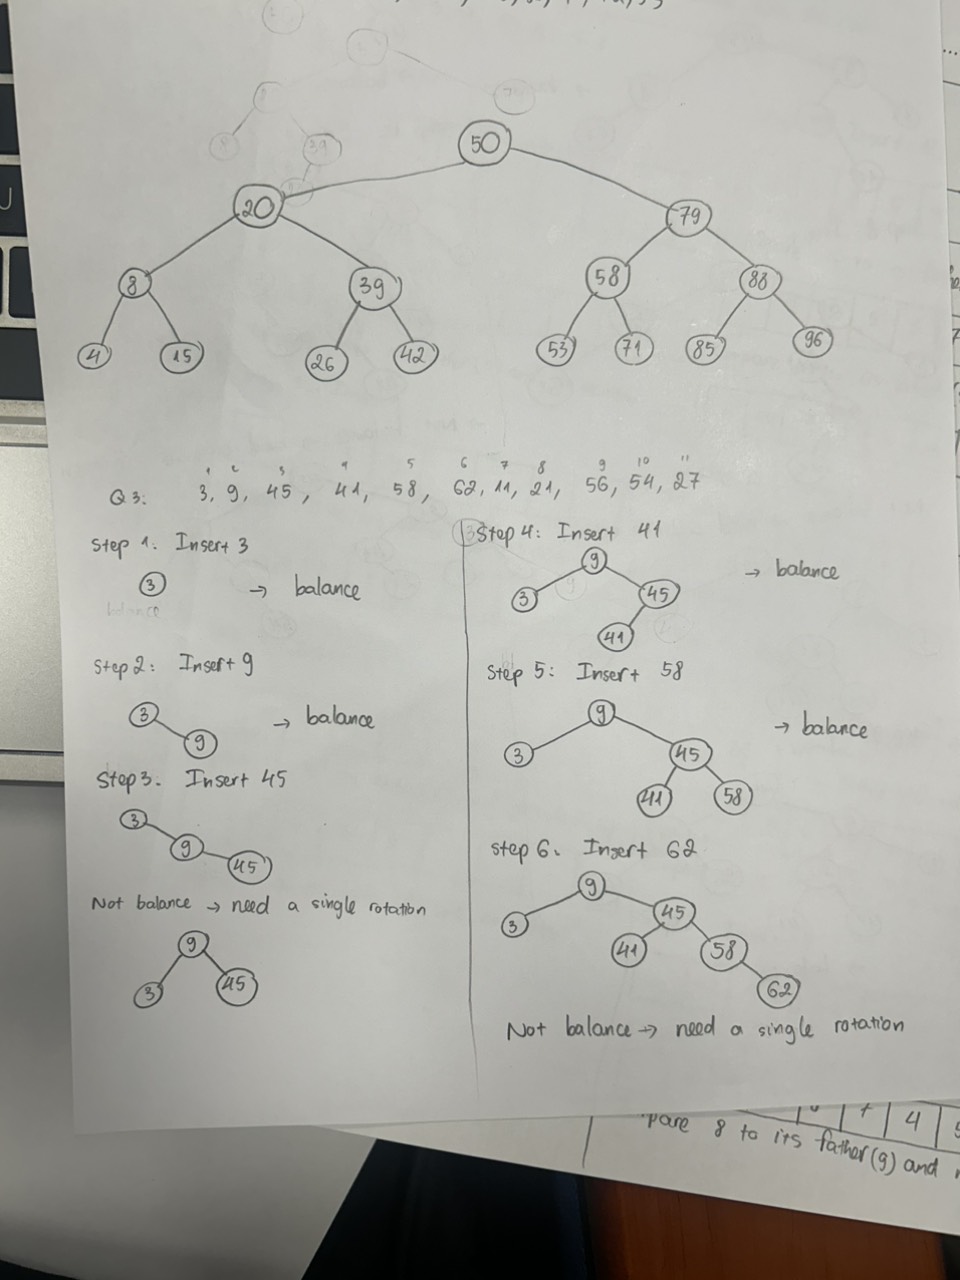 50
20 79
8 39 58 88
4 15 26 42 53 71 85 96
1 2 3 4 5 6 7 8 9 10 11
Q3: 3, 9, 45, 41, 58, 62, 11, 21, 56, 54, 27
Step 1. Insert 3
3 → balance
balance
Step 2: Insert 9
3
9 → balance
Step 3. Insert 45
3
9
45
Not balance → need a single rotation
9
3 45
Step 4: Insert 41
9 → balance
3 45
41
Step 5: Insert 58
9 → balance
3 45
41 58
Step 6. Insert 62
9
3 45
41 58
62
Not balance → need a single rotation
4
pare 8 to its father(9) and